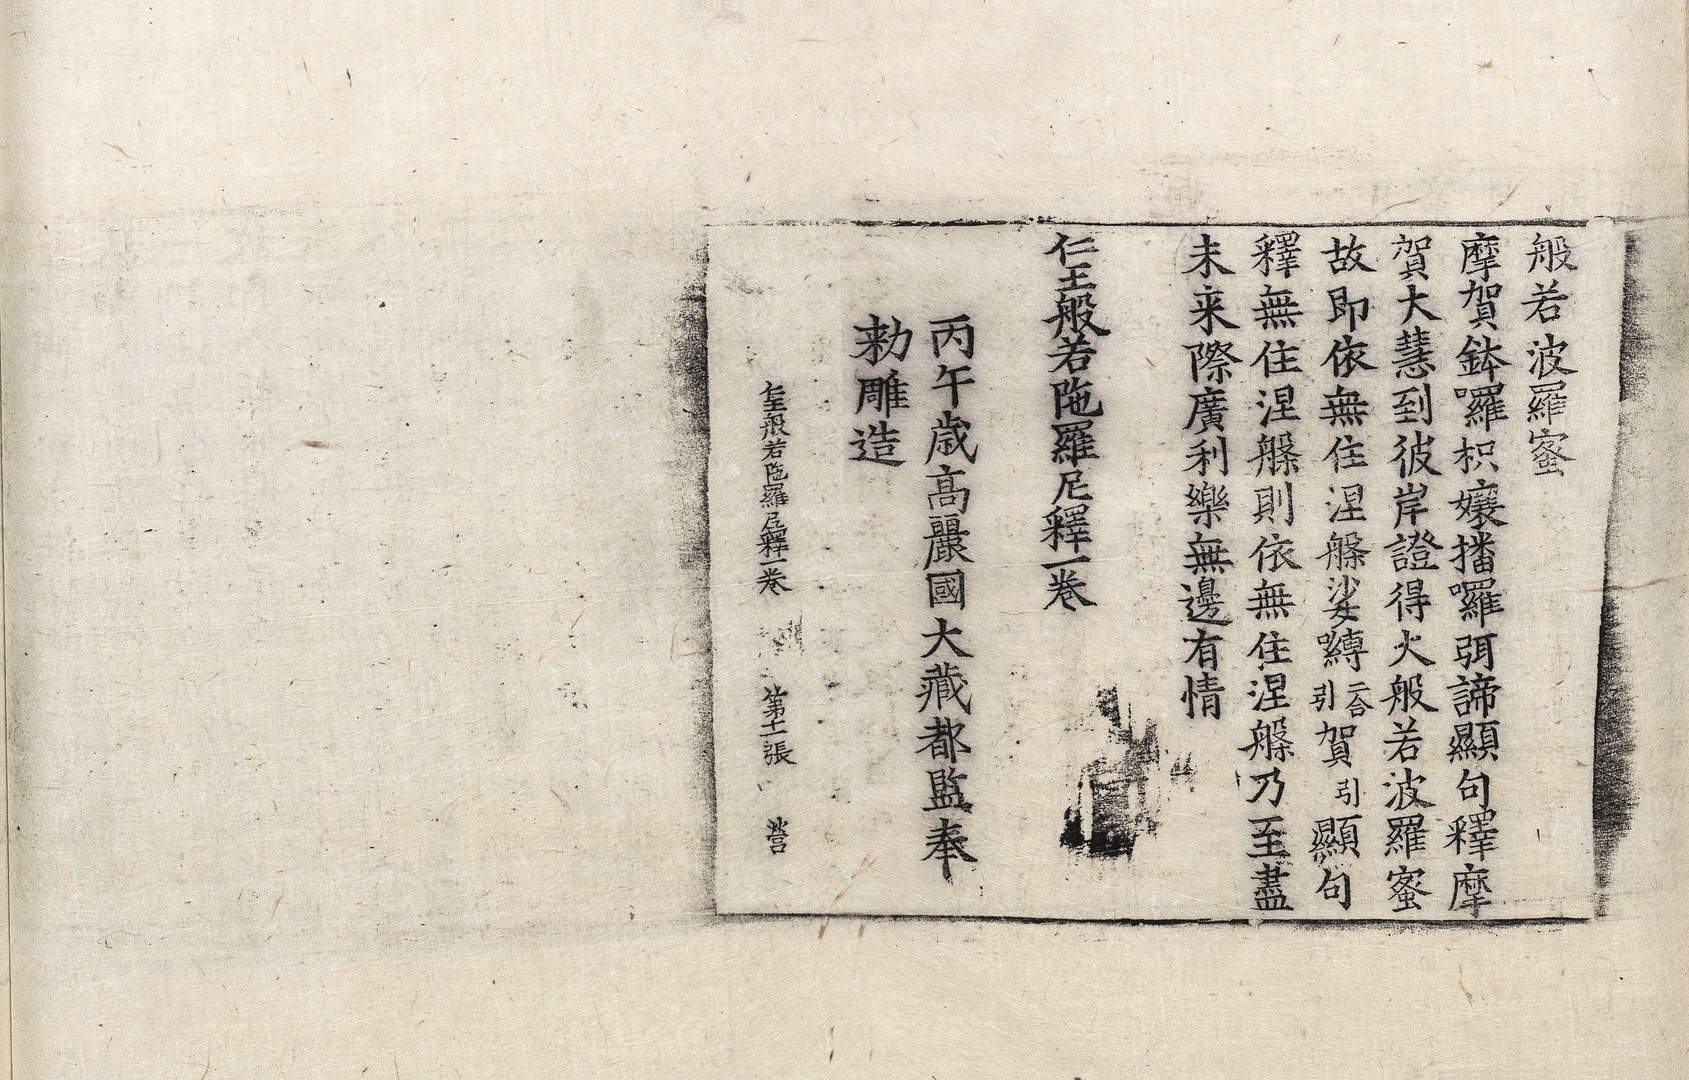 般若波羅蜜
摩賀鉢囉枳孃播囉弭諦顯句釋摩
賀大慧到彼岸證得大般若波羅蜜
故即依無住涅槃娑嚩二合引賀引顯句
釋無住涅槃則依無住涅槃乃至盡
未来際廣利樂無邊有情
仁王般若陁羅尼釋一卷
丙午歳高麗國大藏都監奉
勑雕造
仁王般若陁羅尼釋一卷 第十一張 營